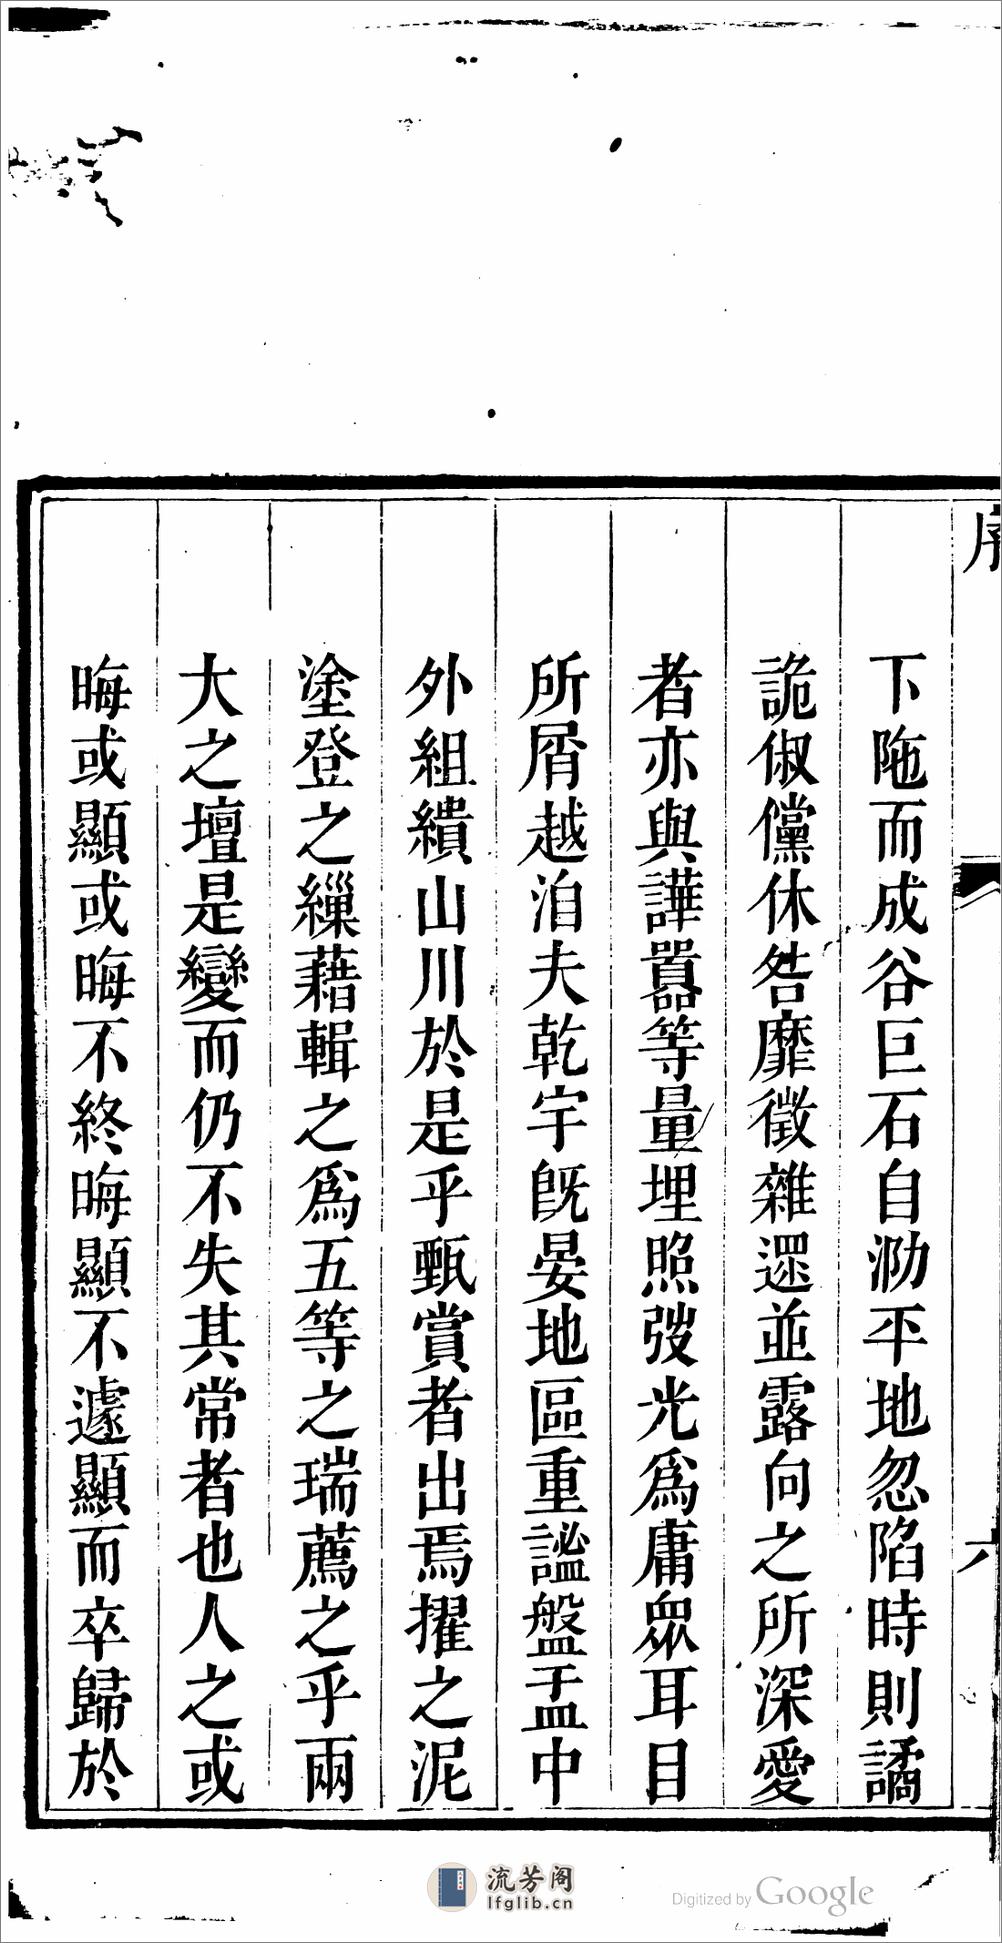 序
六
下陁而成谷巨石自泐平地忽陷時則譎
詭俶儻休咎靡徵雜遝並露向之所深愛
者亦與譁囂等量埋照弢光爲庸眾耳目
所屑越洎夫乾宇旣晏地區重謐盤盂中
外組繢山川於是乎甄賞者出焉擢之泥
塗登之繅藉輯之爲五等之瑞薦之乎兩
大之壇是變而仍不失其常者也人之或
晦或顯或晦不終晦顯不遽顯而卒歸於
流芳阁
lfglib.cn
Digitized by Google